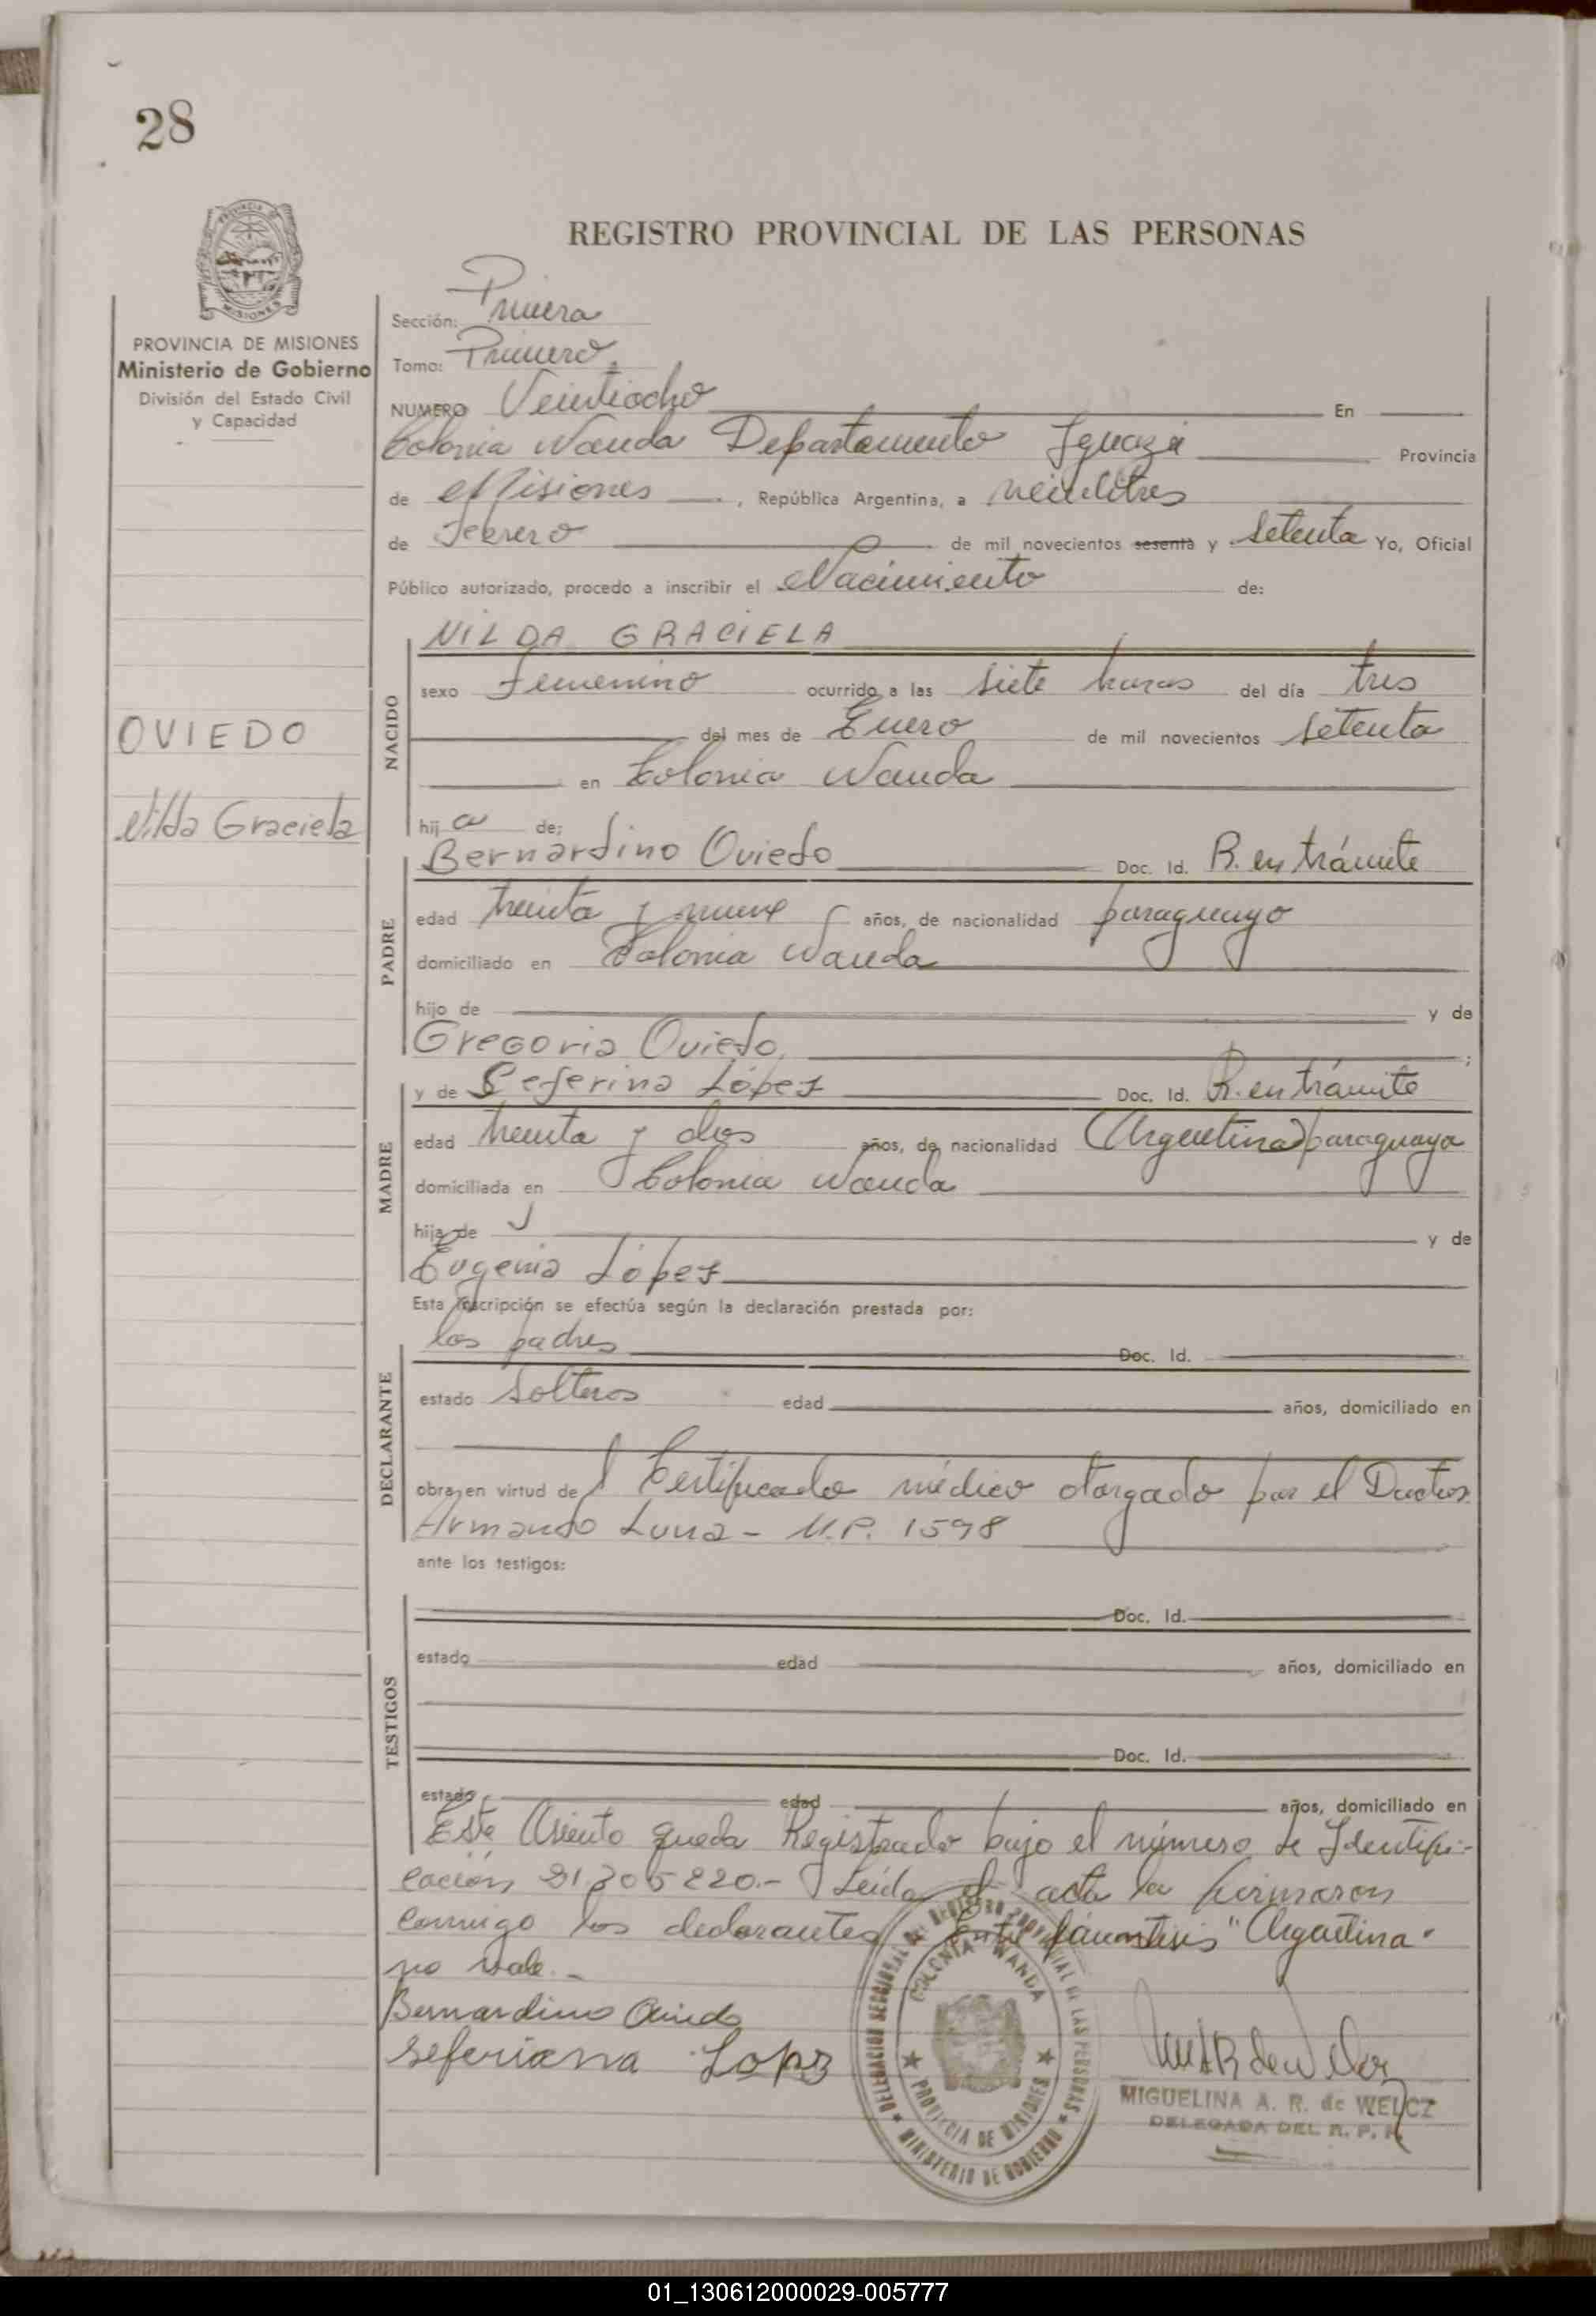 28
REGISTRO PROVINCIAL DE LAS PERSONAS
PROVINCIA DE MISIONES
Ministerio de Gobierno
División del Estado Civil
y Capacidad
Sección: Primera
Tomo: Primero
NUMERO Veintiocho En
Colonia Wanda Departamento Iguazú Provincia
de Misiones, República Argentina, a veintitres
de Febrero de mil novecientos sesenta y setenta Yo, Oficial
Público autorizado, procedo a inscribir el Nacimiento de:
OVIEDO
Nilda Graciela
NACIDO
NILDA GRACIELA
sexo Femenino ocurrido a las siete horas del día tres
del mes de Enero de mil novecientos setenta
en Colonia Wanda
hija de:
PADRE
Bernardino Oviedo Doc. Id. R. en trámite
edad treinta y nueve años, de nacionalidad paraguayo
domiciliado en Colonia Wanda
hijo de y de
Gregoria Oviedo;
MADRE
y de Seferina López Doc. Id. R. en trámite
edad treinta y dos años, de nacionalidad (Argentina) paraguaya
domiciliada en Colonia Wanda
hija de y de
Eugenia López
Esta inscripción se efectúa según la declaración prestada por:
DECLARANTE
los padres Doc. Id.
estado solteros edad años, domiciliado en
obra en virtud de Certificado médico otorgado por el Doctor
Armando Luna - M.P. 1598
ante los testigos:
TESTIGOS
Doc. Id.
estado edad años, domiciliado en
Doc. Id.
estado edad años, domiciliado en
Este Asiento queda Registrado bajo el número de Identifi-
cación 21.305220.- Leída el acta la firmaron
conmigo los declarantes Entre paréntesis "Argentina"
no vale.-
Bernardino Oviedo
Seferiana Lopz
DELEGACION SECCIONAL DEL REGISTRO PROVINCIAL DE LAS PERSONAS
COLONIA WANDA
PROVINCIA DE MISIONES
MINISTERIO DE GOBIERNO
MIGUELINA A. R. de WELCZ
DELEGADA DEL R. P. P.
01_130612000029-005777